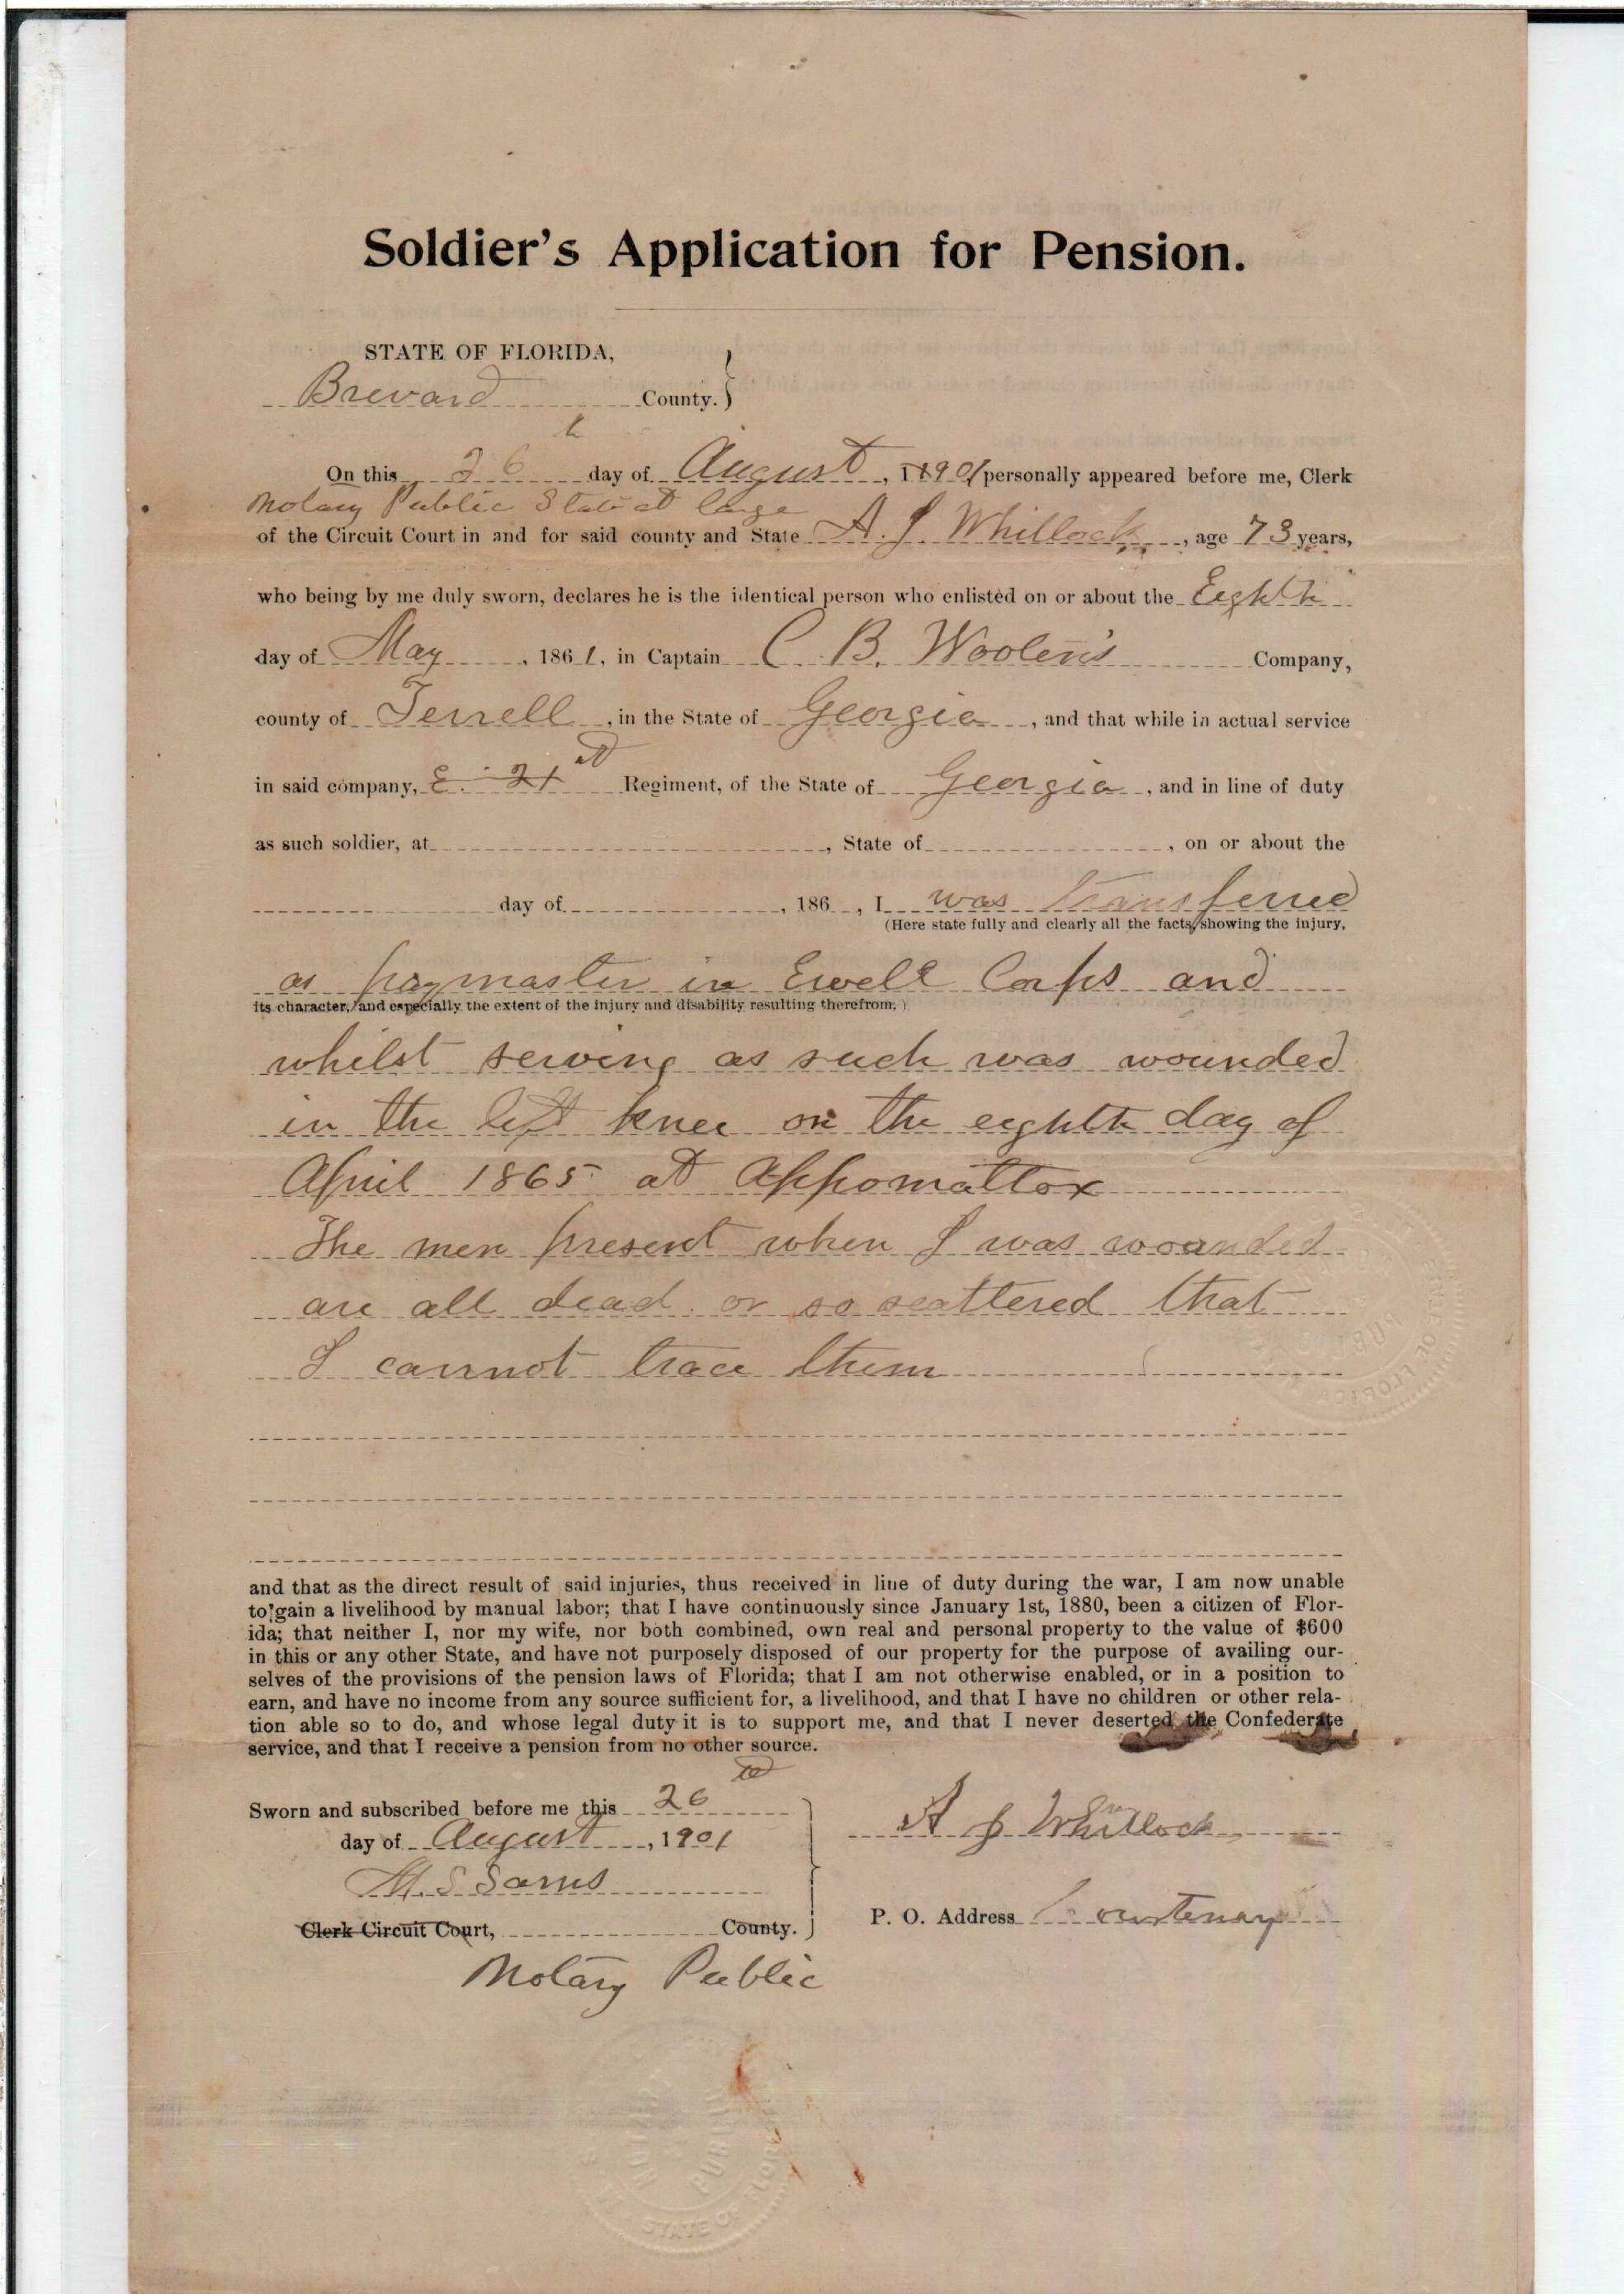 Soldier's Application for Pension.
STATE OF FLORIDA,
Brevard County.
On this 26th day of August, 1901 personally appeared before me, Clerk
Notary Public State at large
of the Circuit Court in and for said county and State A. J. Whitlock, age 73 years,
who being by me duly sworn, declares he is the identical person who enlisted on or about the Eighth
day of May, 1861, in Captain C. B. Wooten's Company,
county of Terrell, in the State of Georgia, and that while in actual service
in said company, E. 21st Regiment, of the State of Georgia, and in line of duty
as such soldier, at , State of , on or about the
day of , 186 , I was transferred
(Here state fully and clearly all the facts, showing the injury,
as paymaster in Ewell Corps and
its character, and especially the extent of the injury and disability resulting therefrom.)
whilst serving as such was wounded
in the left knee on the eighth day of
April 1865 at Appomattox
The men present when I was wounded
are all dead or so scattered that
I cannot trace them
and that as the direct result of said injuries, thus received in line of duty during the war, I am now unable
to gain a livelihood by manual labor; that I have continuously since January 1st, 1880, been a citizen of Flor-
ida; that neither I, nor my wife, nor both combined, own real and personal property to the value of $600
in this or any other State, and have not purposely disposed of our property for the purpose of availing our-
selves of the provisions of the pension laws of Florida; that I am not otherwise enabled, or in a position to
earn, and have no income from any source sufficient for, a livelihood, and that I have no children or other rela-
tion able so to do, and whose legal duty it is to support me, and that I never deserted the Confederate
service, and that I receive a pension from no other source.
Sworn and subscribed before me this 26th
day of August, 1901
A J Whitlock
M. S. Sams
Clerk Circuit Court, County.
P. O. Address Courtenay
Notary Public
STATE OF FLORIDA